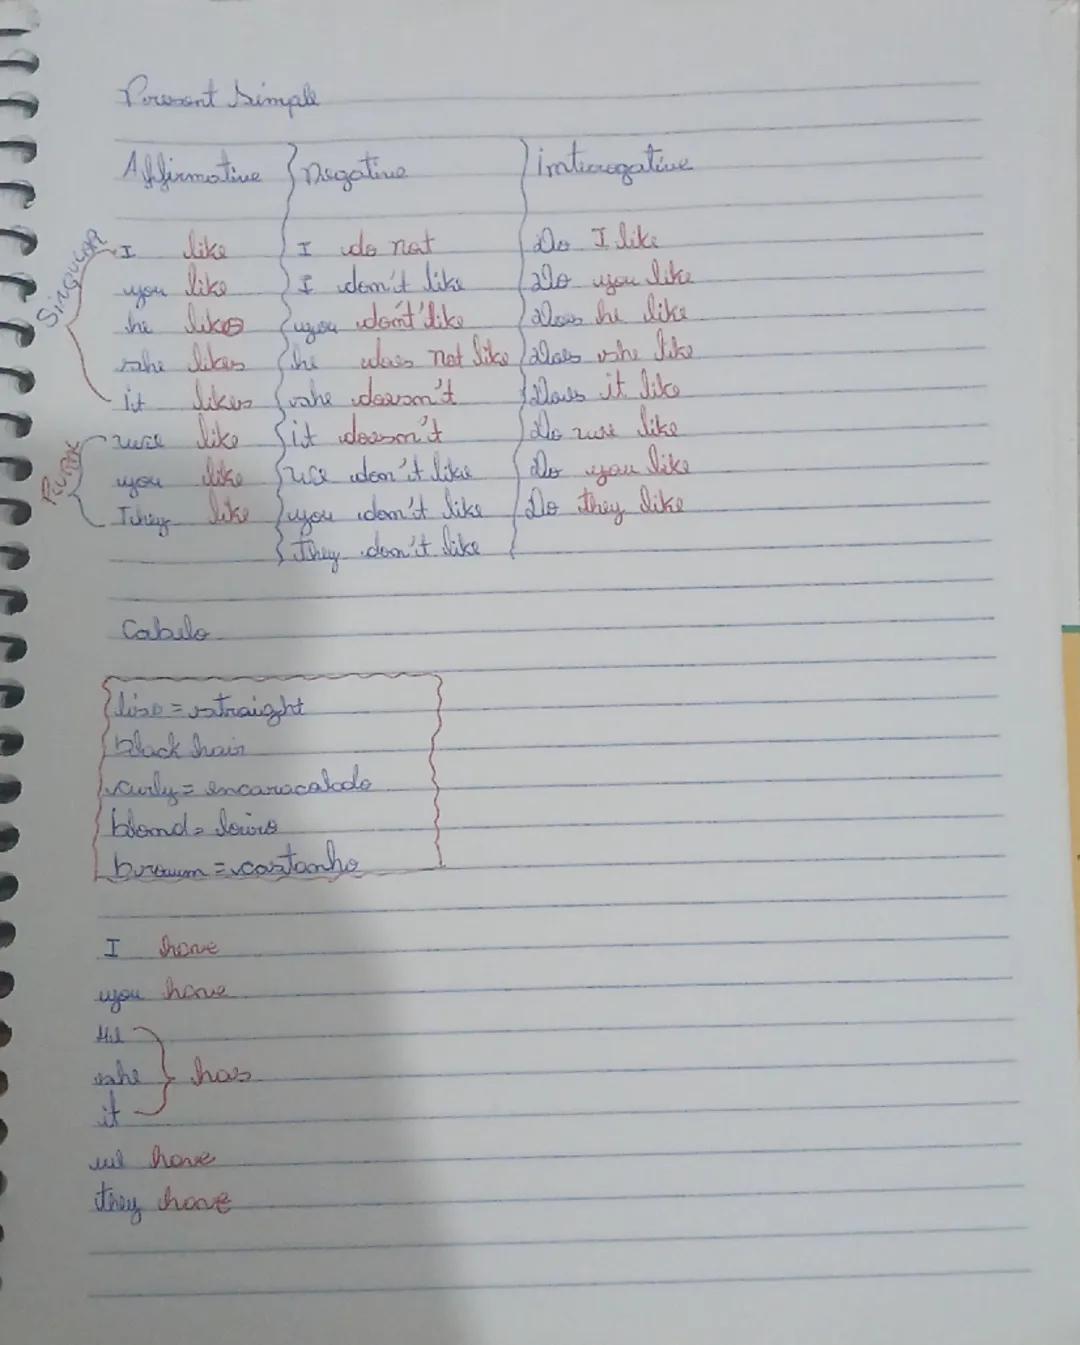 Present Simple
Affirmative negative interrogative
Singular
I like I do not Do I like
you like I don't like Do you like
he likes you don't like Does he like
she likes he does not like Does she like
it likes she doesn't Does it like
Plural
we like it doesn't Do we like
you like we don't like Do you like
They like you don't like Do they like
they don't like
Cabelo
liso = straight
black hair
curly = encaracolado
blond = louro
brown = castanho
I have
you have
He
she has
it
we have
they have